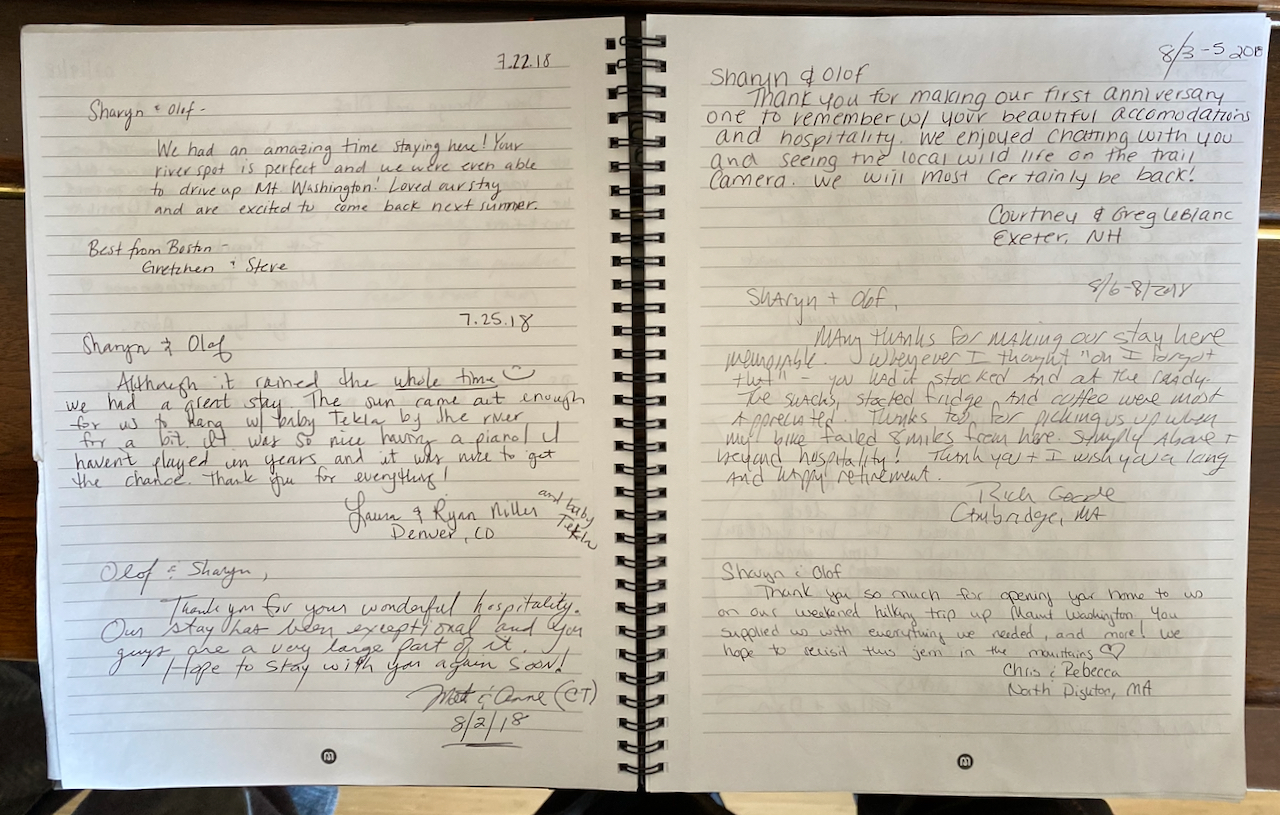 7.22.18
Sharyn & Olof -
We had an amazing time staying here! Your
river spot is perfect and we were even able
to drive up Mt. Washington! Loved our stay
and are excited to come back next summer.
Best from Boston -
Gretchen & Steve
7.25.18
Sharyn & Olof
Although it rained the whole time
we had a great stay. The sun came out enough
for us to hang w/ baby Tekla by the river
for a bit. It was so nice having a piano! I
haven't played in years and it was nice to get
the chance. Thank you for everything!
Laura & Ryan Miller
and baby
Tekla
Denver, CO
Olof & Sharyn,
Thank you for your wonderful hospitality.
Our stay has been exceptional and you
guys are a very large part of it.
Hope to stay with you again soon!
& Anne (CT)
8/2/18
8/3-5 2018
Sharyn & Olof
Thank you for making our first anniversary
one to remember w/ your beautiful accomodations
and hospitality. We enjoyed chatting with you
and seeing the local wild life on the trail
camera. We will most certainly be back!
Courtney & Greg LeBlanc
Exeter, NH
8/6-8/2018
Sharyn + Olof,
Many thanks for making our stay here
memorable. Whenever I thought "oh I forgot
that" - you had it stocked and at the ready.
The snacks, stocked fridge and coffee were most
appreciated. Thanks too, for picking us up when
my bike failed 8 miles from here. Simply above +
beyond hospitality! Thank you + I wish you a long
and happy retirement.
Rich
Cambridge, MA
Sharyn & Olof
Thank you so much for opening your home to us
on our weekend hiking trip up Mount Washington. You
supplied us with everything we needed, and more! We
hope to revisit this jem in the mountains ♡
Chris & Rebecca
North Dighton, MA